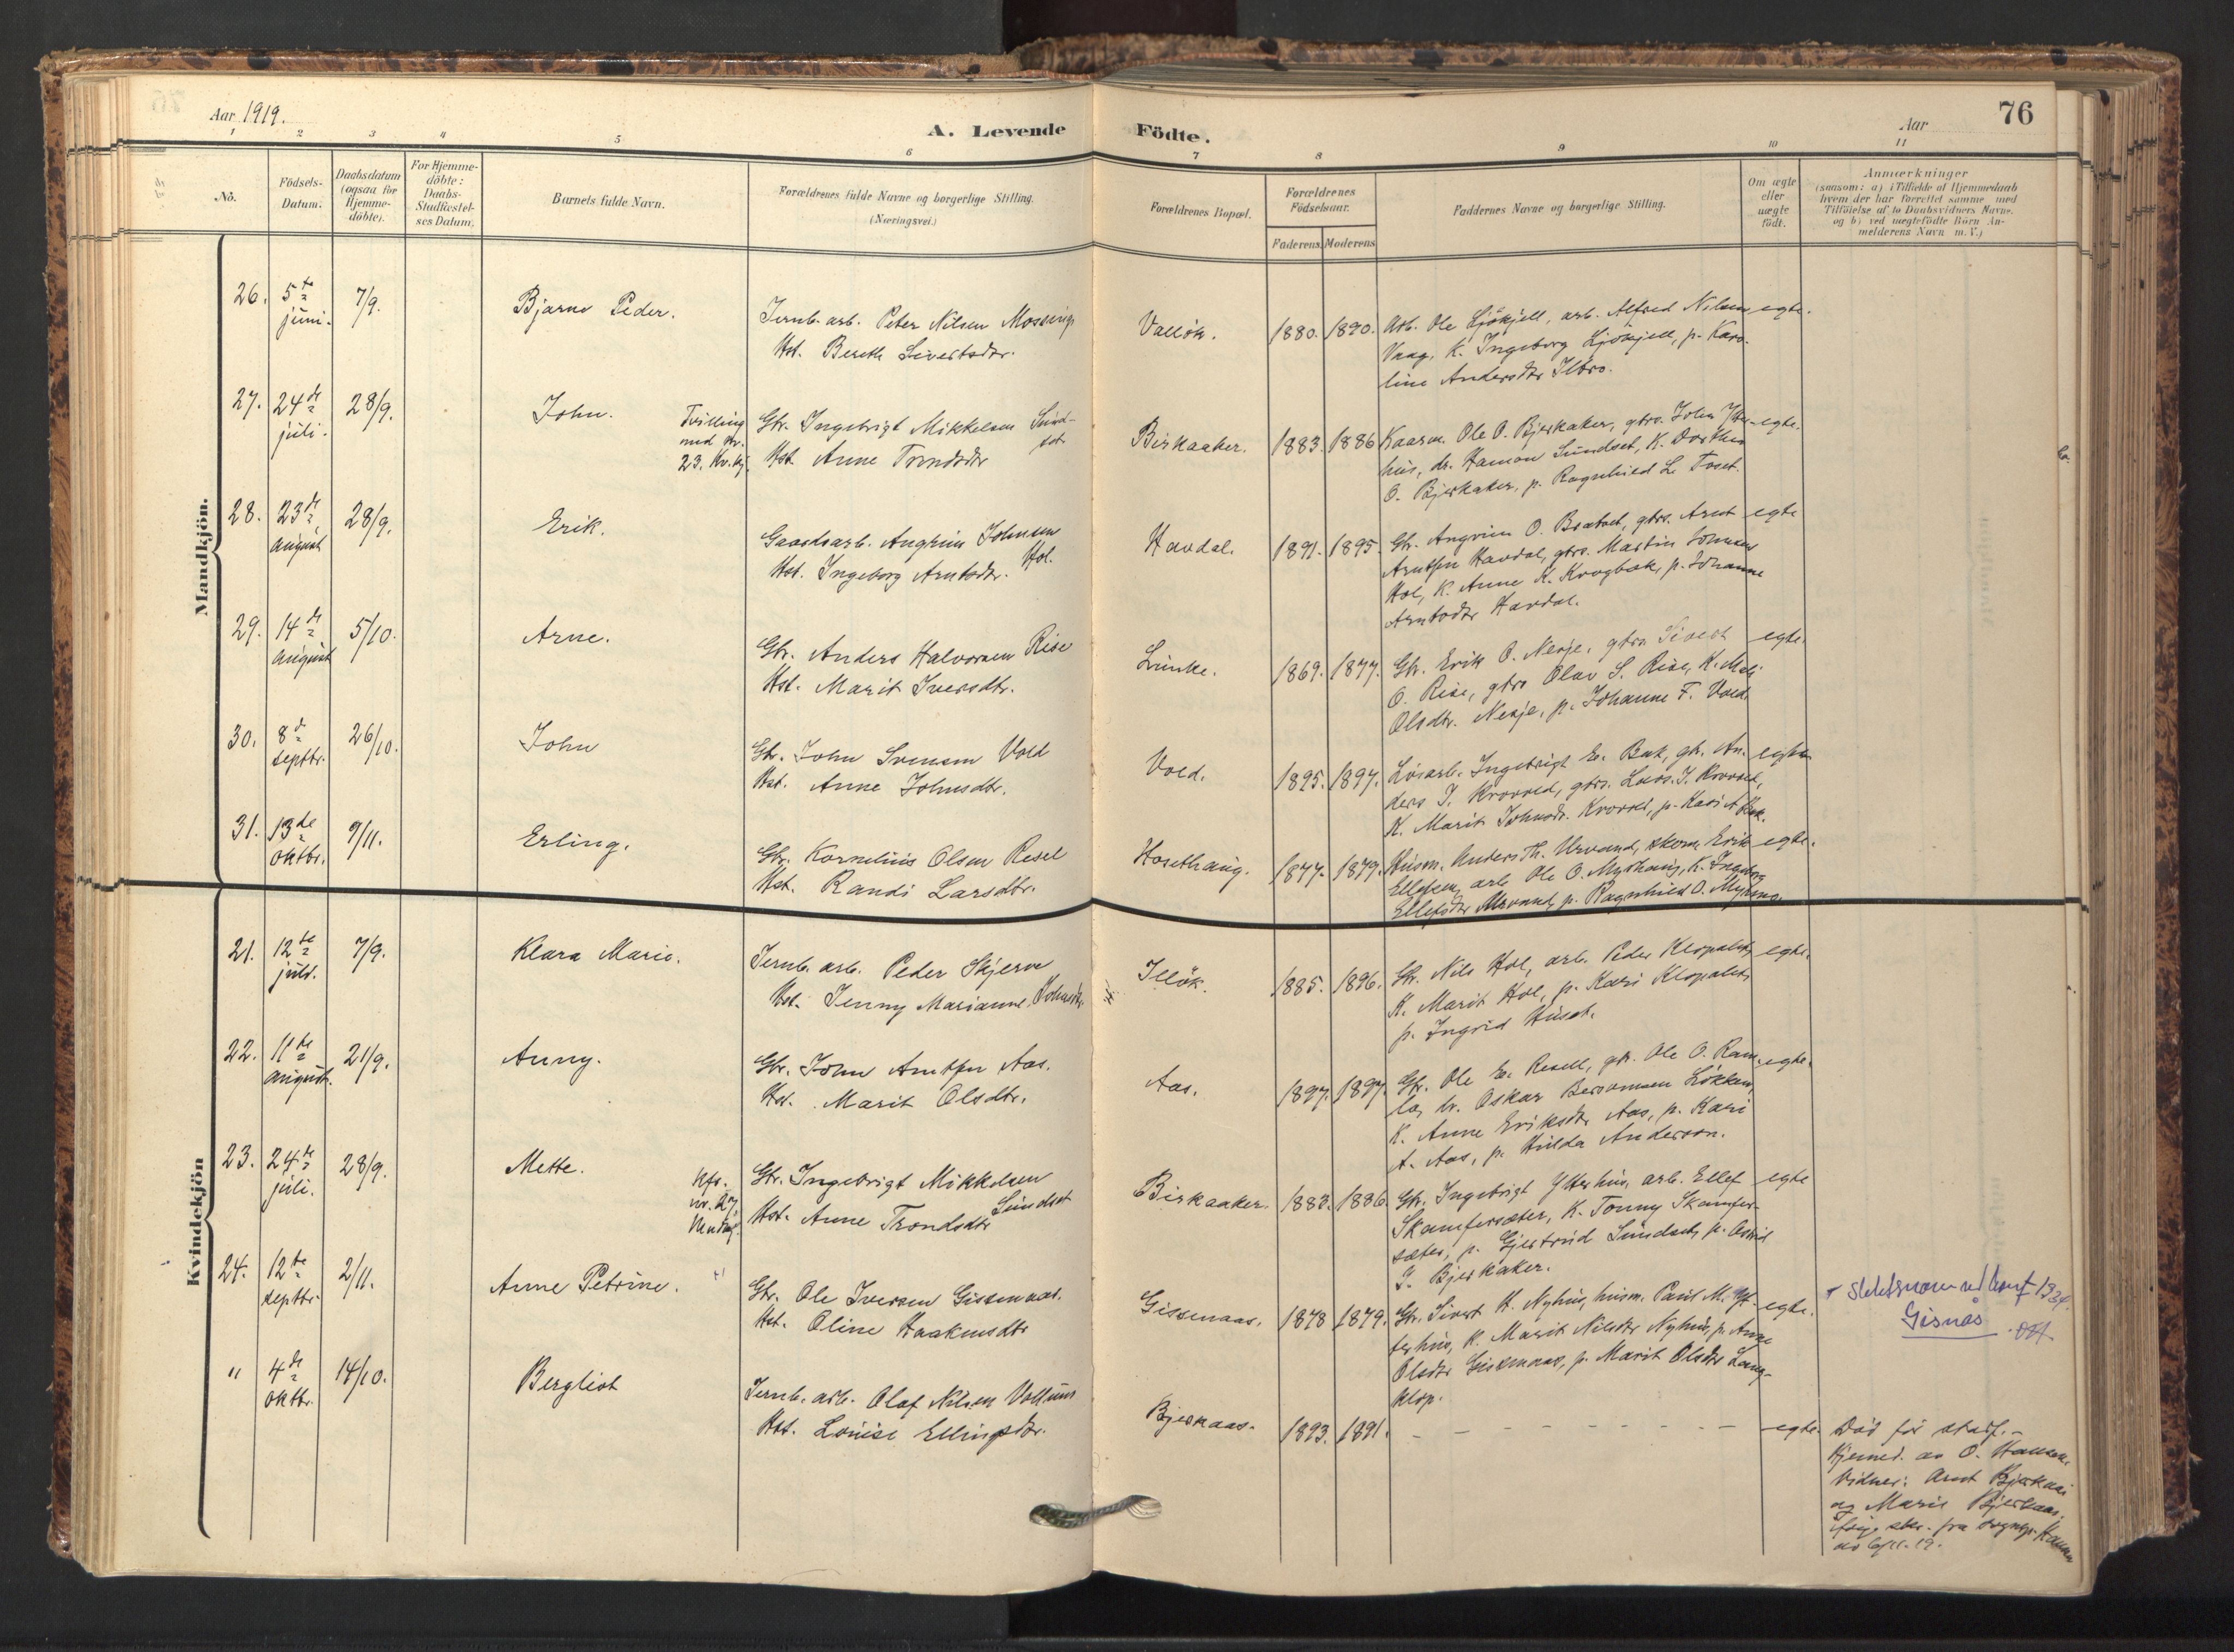 Aar 1919.
A. Levende
Födte.
Aar
76
1 2 3 4 5 6 7 8 9 10 11
No.
Födsels-
Datum.
Daabsdatum
(ogsaa for
Hjemme-
döbte).
For Hjemme-
döbte:
Daabs-
Stadfæstel-
ses Datum.
Barnets fulde Navn.
Forældrenes fulde Navne og borgerlige Stilling.
(Næringsvei.)
Forældrenes Bopæl.
Forældrenes
Födselsaar.
Faderens.
Moderens
Faddernes Navne og borgerlige Stilling.
Om ægte
eller
uægte
födt.
Anmærkninger
(saasom: a) i Tilfælde af Hjemmedaab
hvem der har forrettet samme med
Tilföielse af to Daabsvidners Navne.
og b) ved uægtefödte Börn An-
melderens Navn m. V.)
Mandkjön.
26. 5te juni. 7/9. Bjarne Peder.
Jernb. arb. Peter Nilsen Mossing
Hst. Bereth Sivertsdtr.
Valløk. 1880. 1890.
Arb. Ole Ljökjell, arb. Alfred Nilsen egte.
Vaag, K. Ingeborg Ljökjell, p. Karo-
line Andersdtr Ilbro.
27. 24de juli. 28/9. John.
Tvilling
med nr.
23. Kv.kj.
Gbr. Ingebrigt Mikkelsen Sund-
set
Hst. Anne Trondsdtr
Birkaaker. 1883. 1886
Kaarm. Ole O. Bjerkaker, gbrs. John Ytter- egte.
hus, dr. Hamon Sundset, K. Dorthea
O. Bjerkaker, p. Ragnhild L. Toset.
28. 23de august 28/9. Erik.
Gaardsarb. Angrim Johnsen
Hol.
Hst. Ingeborg Arntsdtr.
Havdal. 1891. 1895.
Gbr. Angrim O. Brætset, gbrs. Arnt egte
Arntsen Havdal, gbrs. Martin Johnsen
Hol, K. Anne K. Krogbæk, p. Johanne
Arntsdtr Havdal.
29. 14de august 5/10. Arne.
Gbr. Anders Halvorsen Rise
Hst. Marit Iversdtr.
Lunke. 1869. 1877.
Gbr. Erik O. Nesje, gbrs Sivert egte.
O. Rise, gbrs Olav S. Rise, K. Mali
Olsdtr. Nesje, p. Johanne F. Vold.
30. 8de septbr. 26/10. John
Gbr. John Svensen Vold
Hst. Anne Johnsdtr.
Vold. 1895. 1897.
Løsarb. Ingebrigt E. Bak, gbr. An- egte
ders J. Krovold, gbrs. Lars J. Krovold,
K. Marit Johnsdr. Krovold, p. Kari A Bak.
31. 13de oktbr. 9/11. Erling.
Gbr. Kornelius Olsen Resel
Hst. Randi Larsdtr.
Hosethaug. 1877. 1879.
Husm. Anders Th. Urvand, skom. Erik egte.
Ellefsen, arb. Ole O. Myrhaug, K. Ingeborg
Ellefsdtr Urvand, p. Ragnhild O. Myrmo.
Kvindekjön
21. 12te juli. 7/9. Klara Marie.
Jernb. arb. Peder Skjerve
Hst. Jenny Marianne Johnsdtr.
Illøk. 1885. 1896.
Gbr. Nils Hol, arb. Peder Klopalet, egte.
K. Marit Hol, p. Kari Klopalet,
p. Ingrid Huset.
22. 11te august. 21/9. Anny.
Gbr. John Arntsen Aas.
Hst. Marit Olsdtr.
Aas. 1897. 1897.
Gbr. Ole E. Resell, gbr. Ole O. Ram- egte.
lo, br. Oskar Berntsen Løkken,
K. Anne Eriksdtr Aas, p. Kari
A. Aas, p. Hulda Anderson.
23. 24de juli. 28/9. Mette.
Kfr.
nr. 27
Mandkj.
Gbr. Ingebrigt Mikkelsen
Sundset
Hst. Anne Trondsdtr
Birkaaker. 1883. 1886.
Gbr. Ingebrigt Ytterhus, arb. Ellef egte
Skamfersæter, K. Tonny Skamfer-
sæter, p. Gjertrud Sundset, p. Astrid
J. Bjerkaker.
24. 12te septbr. 2/11. Anne Petrine.
Gbr. Ole Iversen Gissenaas.
Hst. Oline Haakensdtr
Gissenaas. 1878 1879.
Gbr. Sivert H. Nyhus, husm. Paul M. Yt- egte.
terhus, K. Marit Nilsdtr Nyhus, p. Anne
Olsdtr Gissenaas, p. Marit Olsdtr Lang-
klop.
+ slektsnavn ved konf 1934.
Gisnås
" 4de oktbr. 14/10. Bergliot
Jernb. arb. Olaf Nilsen Vollum
Hst. Louise Ellingsdtr.
Bjerkaas. 1893. 1891. - - - - - - - - egte.
Død før stadf.
Hjemmed. av O. Hansen.
Vidner: Arnt Bjerkaas
og Marie Bjerkaas.
ifølge skr. fra sognepr. Hansen